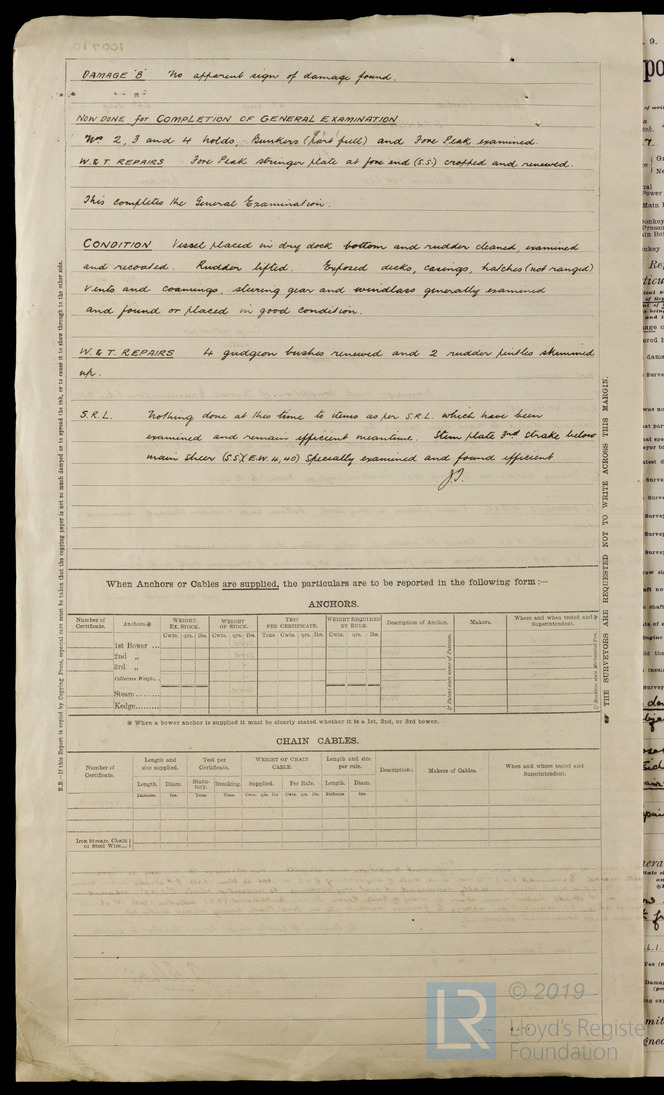 DAMAGE "B" No apparent sign of damage found.
NOW DONE for COMPLETION OF GENERAL EXAMINATION
Nos 2, 3 and 4 holds, Bunkers (part full) and Fore Peak examined.
W. & T. REPAIRS Fore Peak stringer plate at fore end (S.S.) cropped and renewed.
This completes the General Examination.
CONDITION Vessel placed in dry dock bottom and rudder cleaned, examined
and recoated. Rudder lifted. Exposed decks, casings, hatches (not ranged)
Vents and coamings, steering gear and windlass generally examined
and found or placed in good condition.
W. & T. REPAIRS 4 gudgeon bushes renewed and 2 rudder pintles skimmed
up.
S.R.L. Nothing done at this time to items as per S.R.L. which have been
examined and remain efficient meantime. Stem plate 3rd strake below
main sheer (S.S)(E.W. 4, 40) Specially examined and found efficient
J.T.
N.B.—If this Report is copied by Copying Press, especial care must be taken that the copying paper is not so much damped as to spread the ink, or to cause it to show through to the other side.
THE SURVEYORS ARE REQUESTED NOT TO WRITE ACROSS THIS MARGIN.
When Anchors or Cables are supplied, the particulars are to be reported in the following form :—
ANCHORS.
Number of Certificate. Anchors.* WEIGHT. EX. STOCK. WEIGHT OF STOCK. TEST PER CERTIFICATE. WEIGHT REQUIRED BY RULE. Description of Anchor. Makers. Where and when tested and Superintendent.
Cwts. qrs. lbs. Cwts. qrs. lbs. Tons Cwts. qrs. lbs. Cwts. qrs. lbs.
1st Bower ...
2nd „
3rd „
Collective Weight.
Stream.........
Kedge.........
* When a bower anchor is supplied it must be clearly stated whether it is a 1st, 2nd, or 3rd bower.
CHAIN CABLES.
Number of Certificate. Length and size supplied. Test per Certificate. WEIGHT OF CHAIN CABLE. Length and size per rule. Description. Makers of Cables. When and where tested and Superintendent.
Length. Diam. Statutory. Breaking. Supplied. Per Rule. Length. Diam.
Fathoms. Ins. Tons. Tons. Cwts. qrs. lbs. Cwts. qrs. lbs. Fathoms. Ins.
Iron Stream Chain or Steel Wire...
© 2019
LR
Lloyd's Register
Foundation